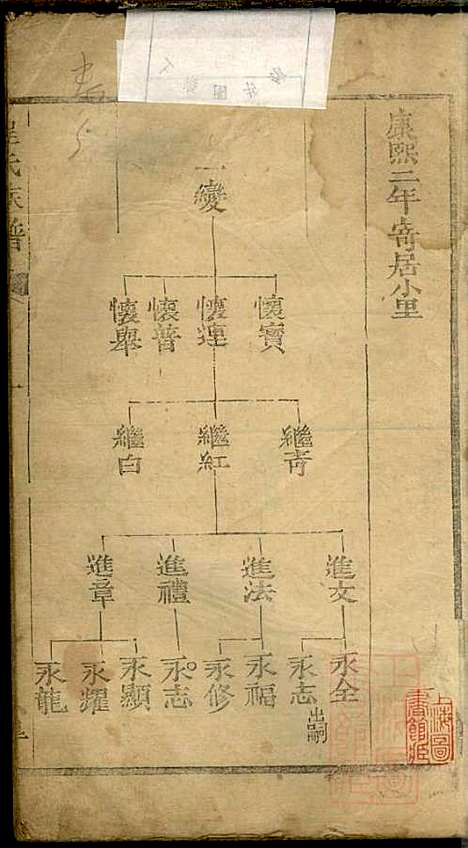 康熙二年寄居小里
一變
懷寶 懷連 懷普 懷舉
繼奇 繼紅 繼白
進文 進法 進禮 進章
永全 永志 永福 永修 永志 永顯 永耀 永龍
出嗣
氏族譜
上海圖書館藏